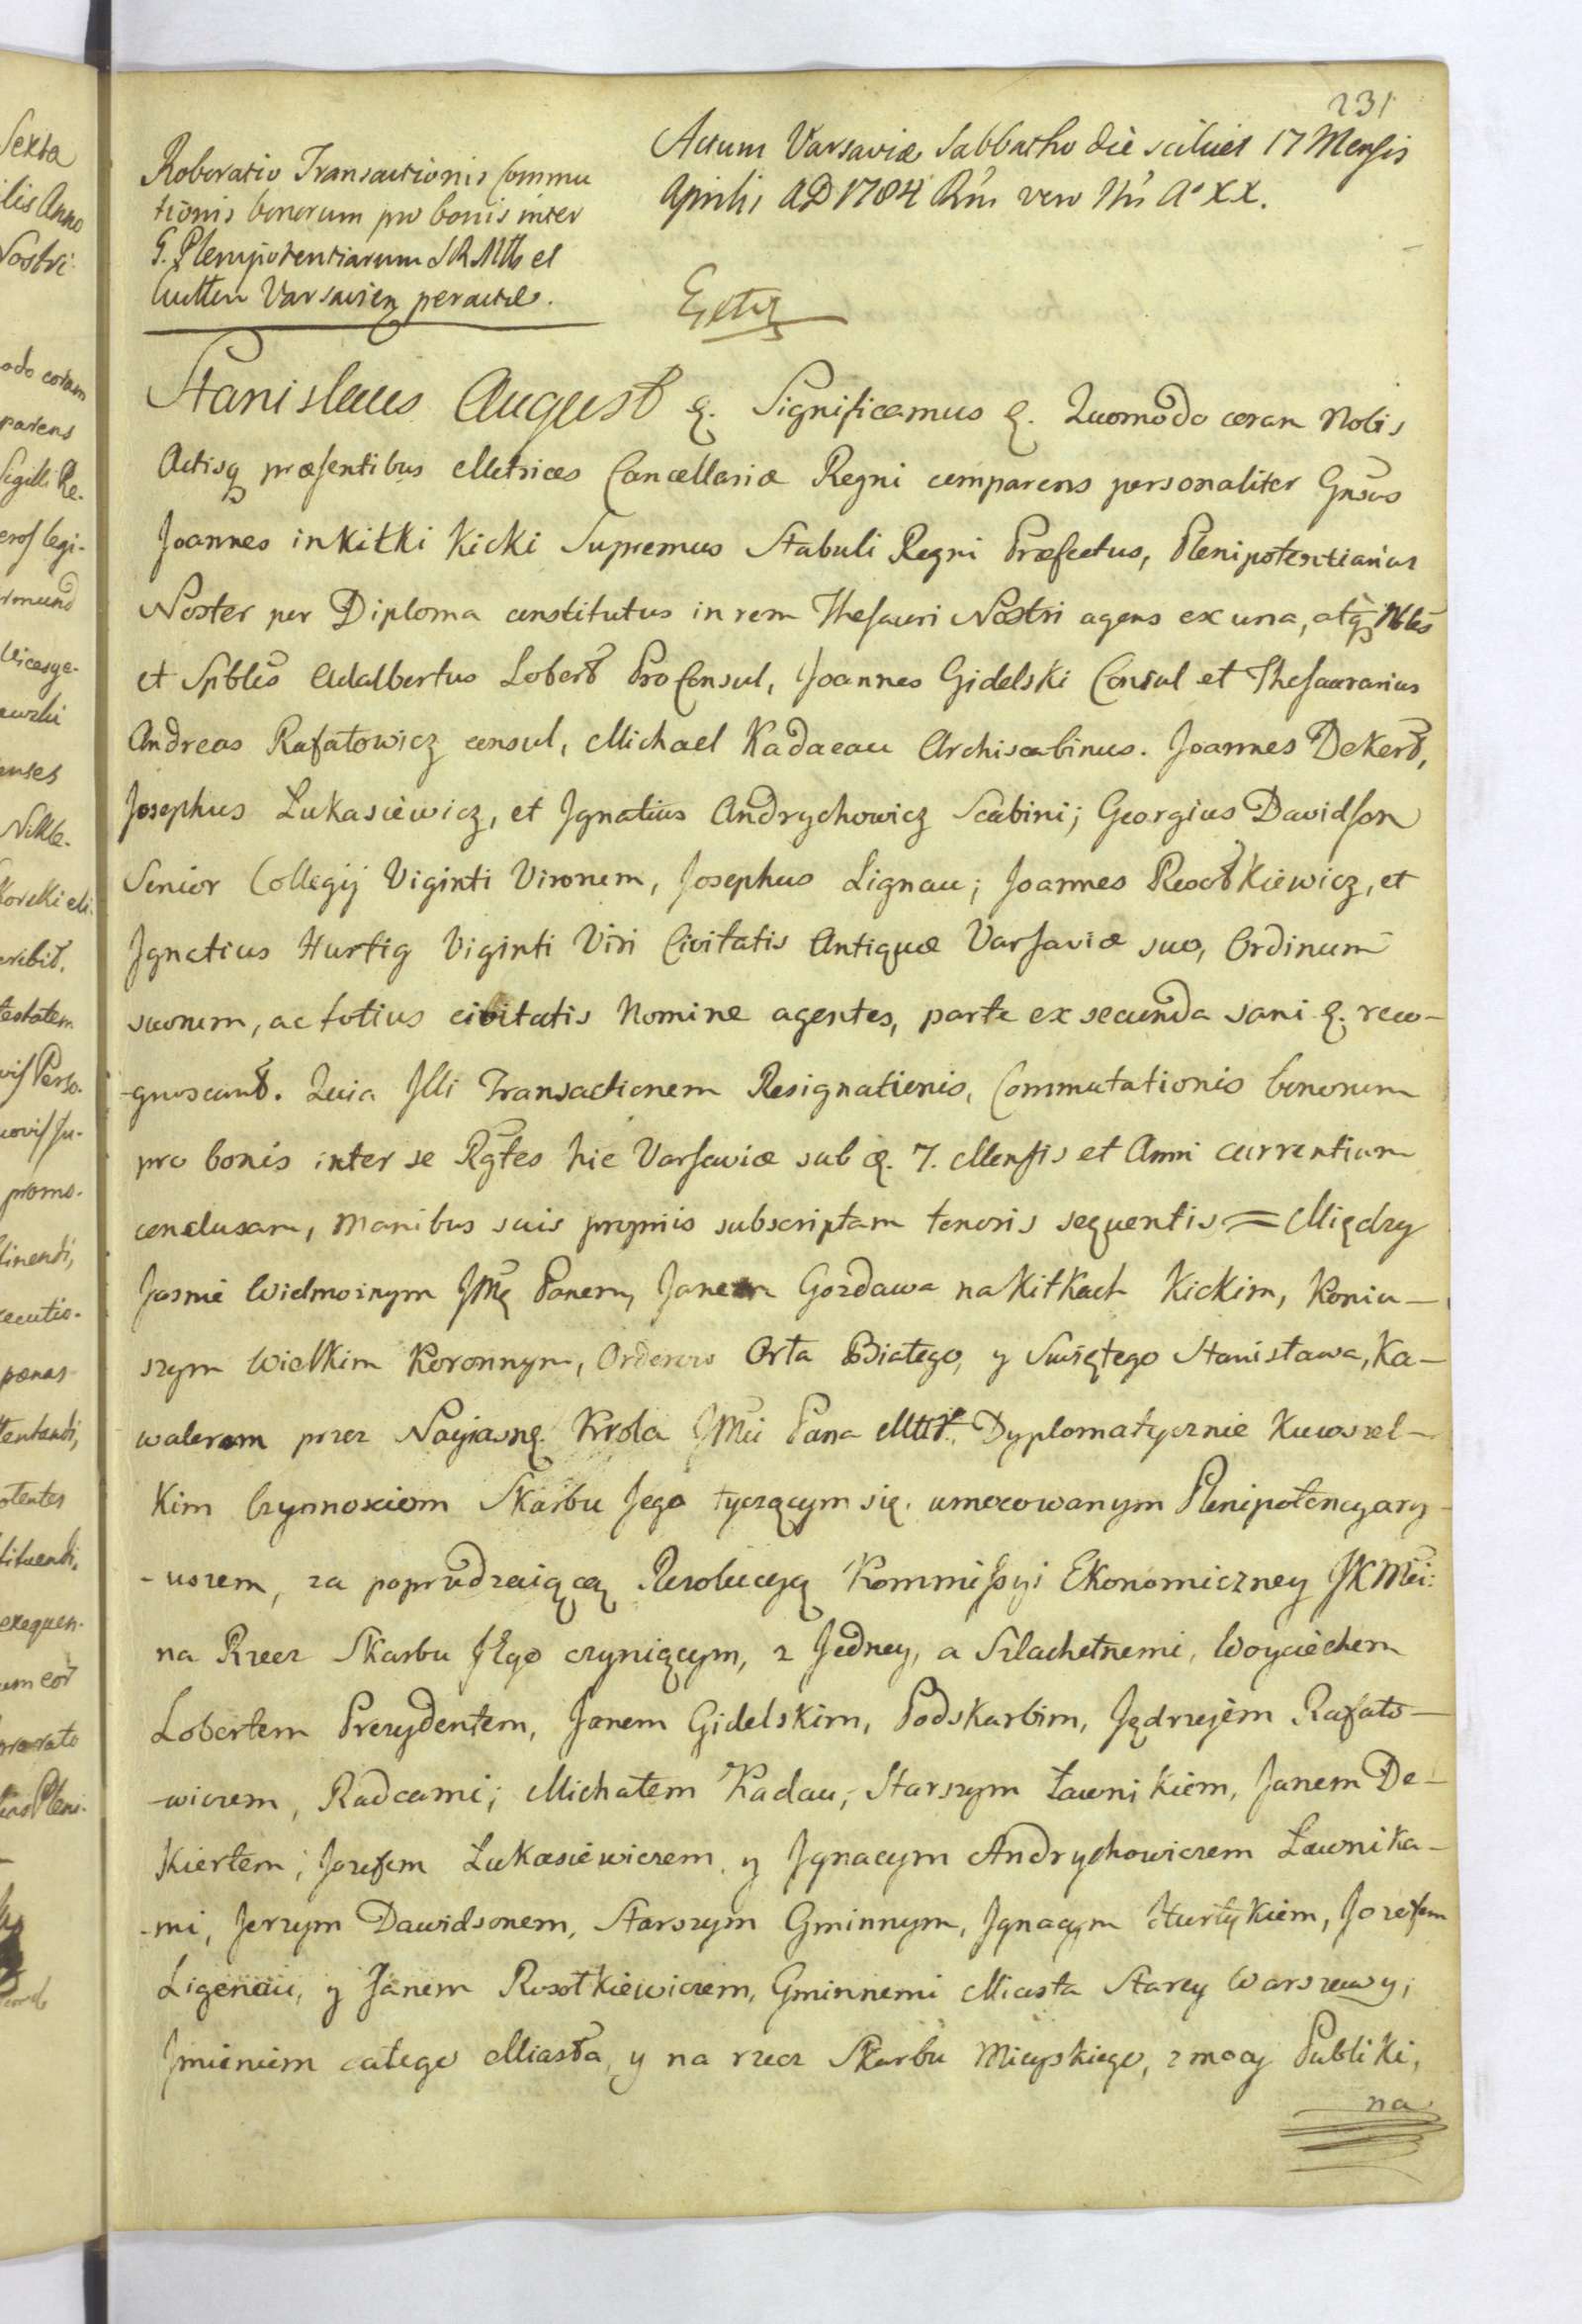 231
Actum Varsaviæ Sabbatho die scilicet 17 Mensis
Aprilis AD 1784 Rni vero Nri A° XX.
Roboratio Transactionis Commu
tionis bonorum pro bonis inter
G. Plenipotentiarum SRMttis et
Cuttem Varsavien peractæ.
Stanislaus August &. Significamus &. Quomodo coram Nobis
Actisq præsentibus Metrices Cancellariæ Regni comparens personaliter Gnsus
Joannes in Kitki Kicki Supremus Stabuli Regni Præfectus, Plenipotentiarius
Noster per Diploma constitutus in rem Thesauri Nostri agens ex una, atq Nbles
et Spbles Adalbertus Lobert ProConsul, Joannes Gidelski Consul et Thesaurarius
Andreas Rafałowicz consul, Michael Kadaeau Archiscabinus. Joannes Dekert,
Josephus Lukasiewicz, et Ignatius Andrychowicz Scabini; Georgius Davidson
Senior Collegij Viginti Virorum, Josephus Lignau; Joannes Rosołkiewicz, et
Ignatius Hurtig Viginti Viri Civitatis Antiquæ Varsaviæ suo, Ordinum
suorum, ac totius civitatis Nomine agentes, parte ex secunda sani &. reco-
-gnoscunt. Quia Illi Transactionem Resignationis, Commutationis bonorum
pro bonis inter se Rgtes hic Varsaviæ sub &. 7. Mensis et Anni currentium
conclusam, manibus suis propriis subscriptam tenoris sequentis = Między
Jasnie Wielmoznym JMę Panem, Janem Gozdawa na Kitkach Kickim, Koniu-
szym Wielkim Koronnym, Orderow Orła Białego, y Swiętego Stanisława, Ka-
walerem przez Nayiasnę. Krola JMci Pana Dyplomatycznie Kuwszel-
kim Czynnosciom Skarbu Jego tyczącym się. umocowanym Plenipotencyary-
-uszem, za poprzedzaiącą Rezolucyą Kommissyi Ekonomiczney JKMci:
na Rzecz Skarbu JEgo czyniącym, z Jedney, a Szlachetnemi, Woyciechem
Lobertem Prezydentem, Janem Gidelskim, Podskarbim, Jędrzejem Rafało-
-wiczem, Radcami; Michałem Kadau, Starszym Ławnikiem, Janem De-
kiertem; Jozefem Lukasiewiczem, y Ignacym Andrychowiczem Ławnika-
-mi, Jerzym Dawidsonem, Starszym Gminnym, Ignacym Hurtykiem, Jozefem
Ligenau, y Janem Rosołkiewiczem, Gminnemi Miasta Starey Warszawy;
Imieniem całego Miasta, y na rzecz Skarbu Mieyskiego, z mocy Publiki,
na